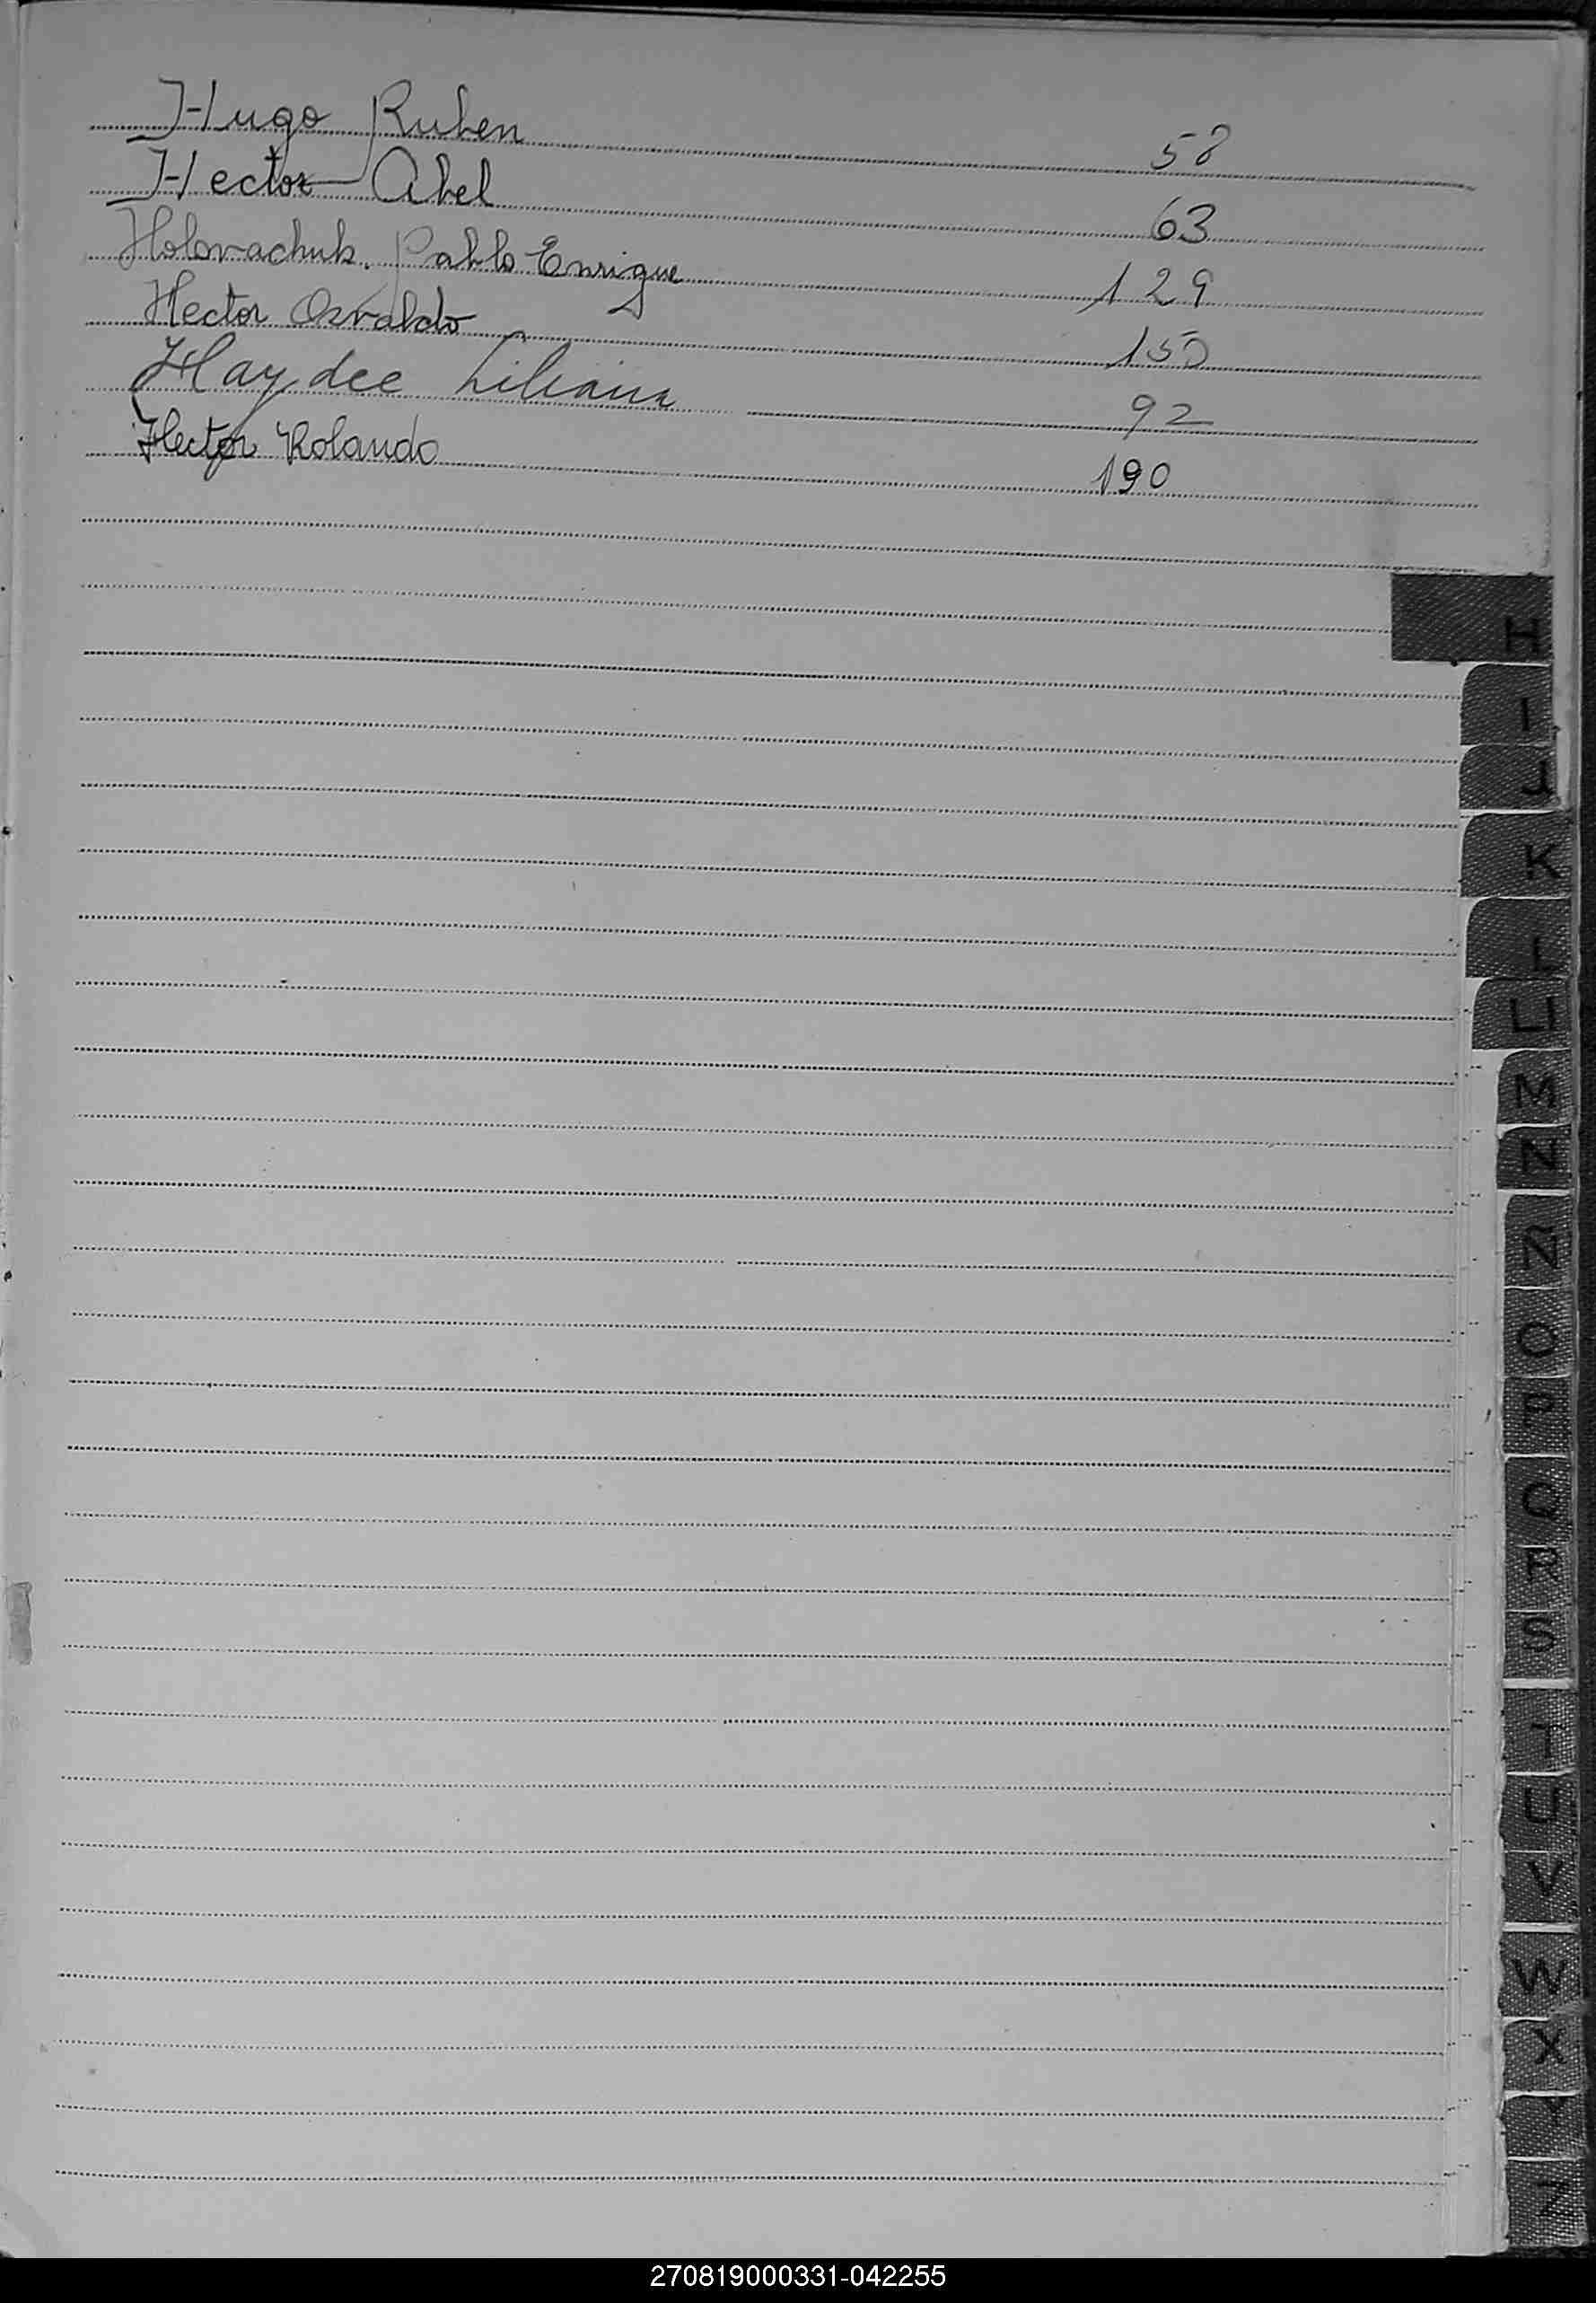 Hugo Ruben 58
Hector Abel 63
Holovachuk. Pablo Enrique 129
Hector Osvaldo 150
Haydee Liliana 92
Hector Rolando 190
H
I
J
K
L
LL
M
N
Ñ
O
P
Q
R
S
T
U
V
W
X
Y
Z
270819000331-042255